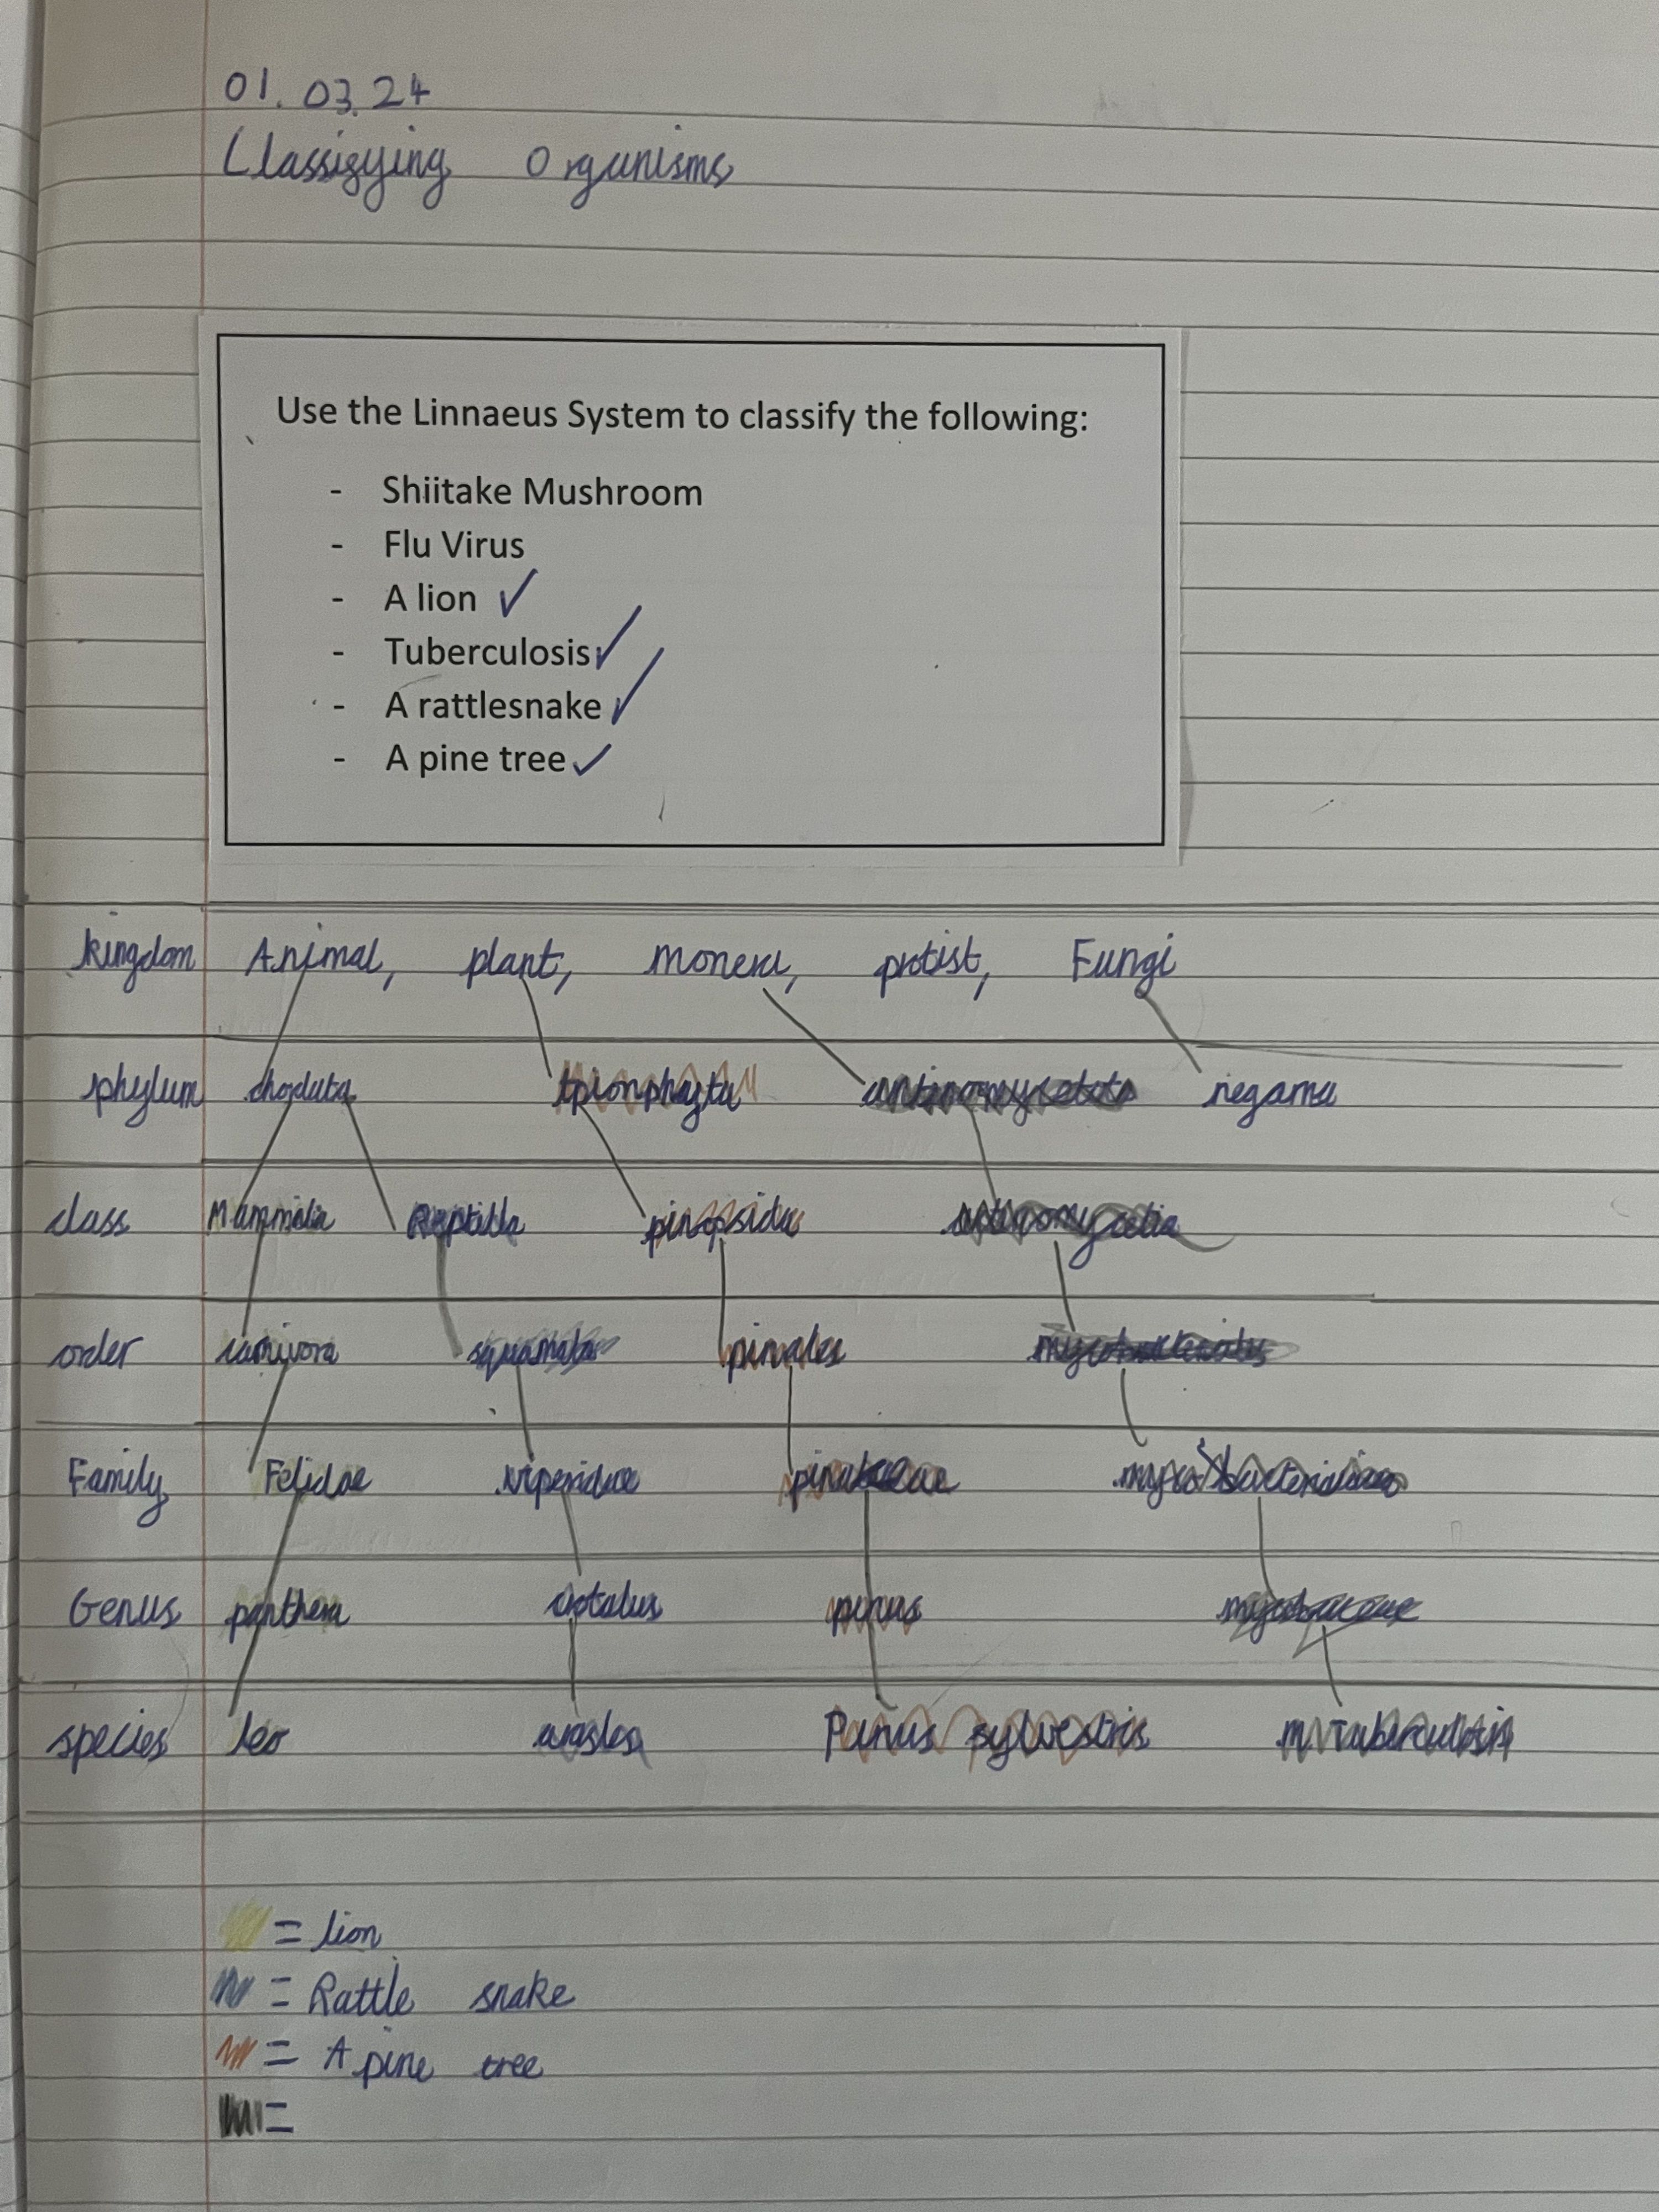 01.03.24
Classifying Organisms
Use the Linnaeus System to classify the following:
- Shiitake Mushroom
- Flu Virus
- A lion ✓
- Tuberculosis ✓
- A rattlesnake ✓
- A pine tree ✓
kingdom Animal, plant, monera, protist, Fungi
phylum chodata negama
class Mammalia Reptilla pinopsida
order carnivora squamata pinales
Family Felidae viperidae
Genus panthera crotalus pinus
species leo Pinus sylvestris m. Tuberculosis
= lion
= Rattle snake
= A pine tree
=